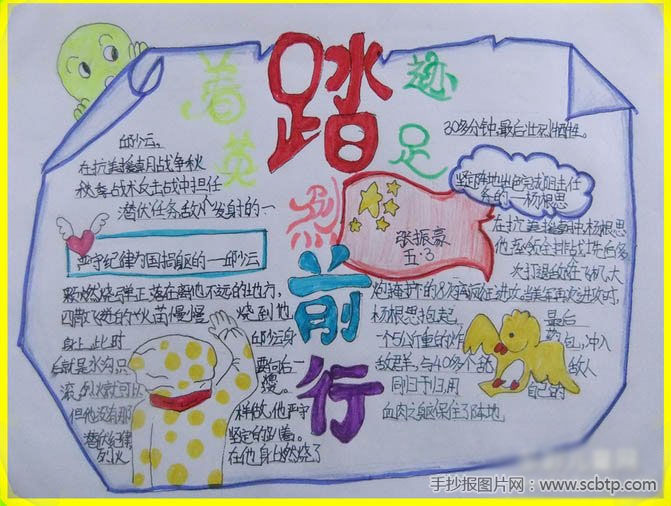 踏
着
英
烈
足
迹
前
行
邱少云,
在抗美援朝月战争秋
秋季战术反击战中担任
潜伏任务敌个发射的一
严守纪律为国捐躯的——邱少云
颗燃烧弹正落在离他不远的地方,
四散飞迸的火苗慢慢 烧到他
身上,此时 邱少云身
后就是水沟,只 要向后一
滚,烈火就可以
但他没有那 样做,他严守
潜伏纪律 坚定的趴着。
烈火 在他身上燃烧了
30多分钟,最后壮烈牺牲。
张振豪
五·3
坚守阵地出色完成阻击任
务的——杨根思
在抗美援朝中,杨根思
他率领全排战士先后多
次打退敌在飞机大
炮掩护下的8次疯狂进攻,当美军再次进攻时,
杨根思抱起 最后
一个5公斤重的炸 药包,冲入
敌群,与40多个敌 敌人
同归于尽,用 自己的
血肉之躯保住了阵地
手抄报图片网:www.scbtp.com